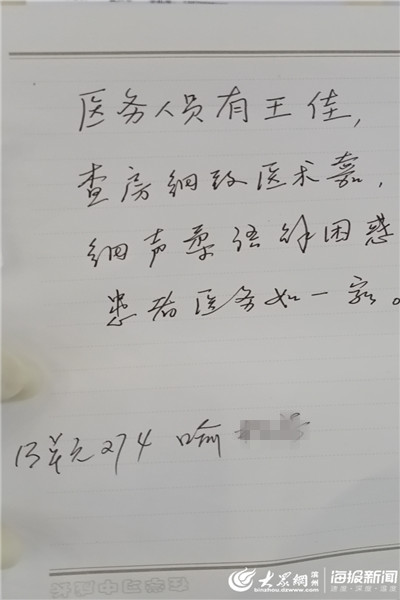 医务人员有王佳，
查房细致医术嘉，
细声柔语解困惑
患者医务如一家。
15单元274 喻
大众网 滨州
binzhou.dzwww.com
海报新闻
速度·深度·温度